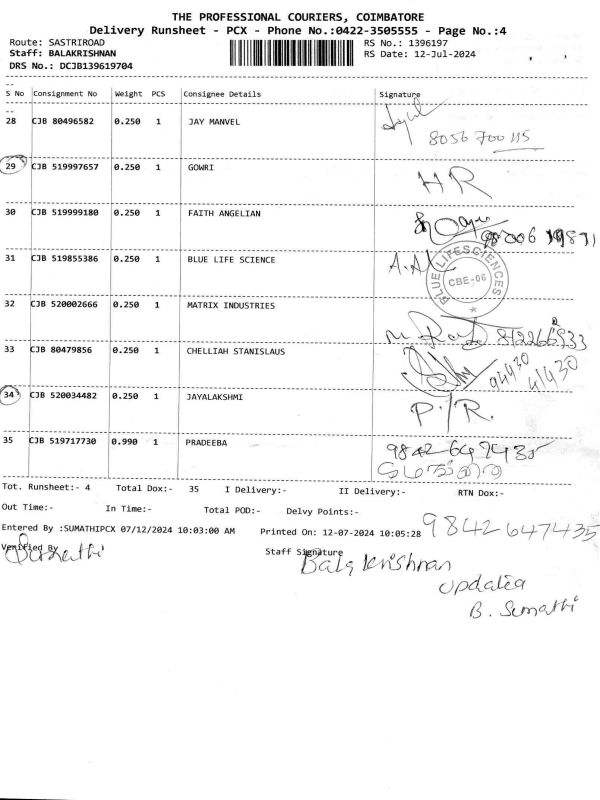 THE PROFESSIONAL COURIERS, COIMBATORE
Delivery Runsheet - PCX - Phone No.:0422-3505555 - Page No.:4
Route: SASTRIROAD RS No.: 1396197
Staff: BALAKRISHNAN RS Date: 12-Jul-2024
DRS No.: DCJB139619704
S No Consignment No Weight PCS Consignee Details Signature
28 CJB 80496582 0.250 1 JAY MANVEL
8056 700 115
29 CJB 519997657 0.250 1 GOWRI HR
30 CJB 519999180 0.250 1 FAITH ANGELIAN
31 CJB 519855386 0.250 1 BLUE LIFE SCIENCE
BLUE LIFESCIENCES
CBE-06
32 CJB 520002666 0.250 1 MATRIX INDUSTRIES
33 CJB 80479856 0.250 1 CHELLIAH STANISLAUS
94430
41430
34 CJB 520034482 0.250 1 JAYALAKSHMI P/R.
35 CJB 519717730 0.990 1 PRADEEBA 9842647435
Tot. Runsheet:- 4 Total Dox:- 35 I Delivery:- II Delivery:- RTN Dox:-
Out Time:- In Time:- Total POD:- Delvy Points:-
Entered By :SUMATHIPCX 07/12/2024 10:03:00 AM Printed On: 12-07-2024 10:05:28 9842647435
Verified By Staff Signature
Sumathi Balakrishnan
Updated
B. Sumathi